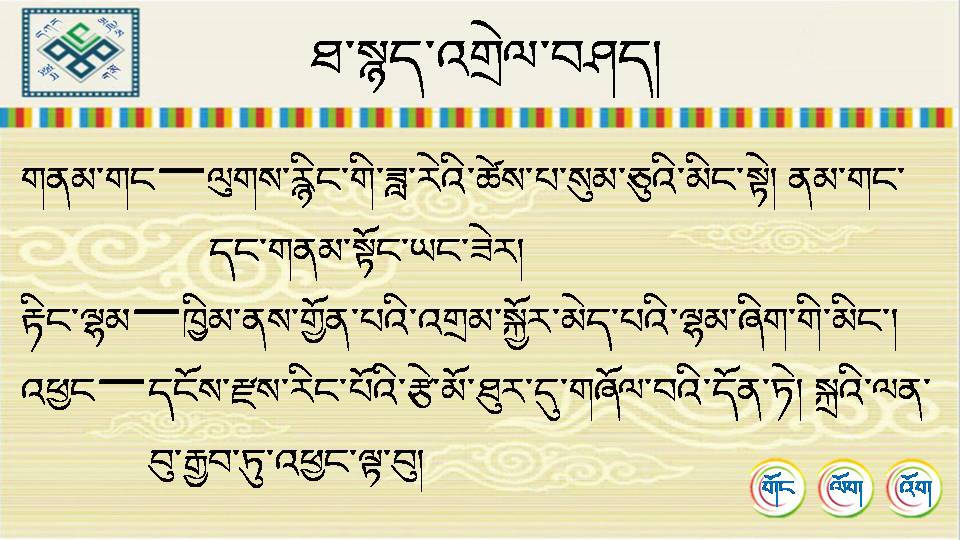 ཐ་སྙད་འགྲེལ་བཤད།
གནམ་གང་——ལུགས་རྙིང་གི་ཟླ་རེའི་ཚེས་པ་སུམ་ཅུའི་མིང་སྟེ། ནམ་གང་
དང་གནམ་སྟོང་ཡང་ཟེར།
རྟིང་ལྷམ——ཁྱིམ་ནས་གྱོན་པའི་འགྲམ་སྐྱོར་མེད་པའི་ལྷམ་ཞིག་གི་མིང་།
འཕྱང——དངོས་རྫས་རིང་པོའི་རྩེ་མོ་ཐུར་དུ་གཞོལ་བའི་དོན་ཏེ། སྐྲའི་ལན་
བུ་རྒྱབ་ཏུ་འཕྱང་ལྟ་བུ།
གོང ལོག འོག